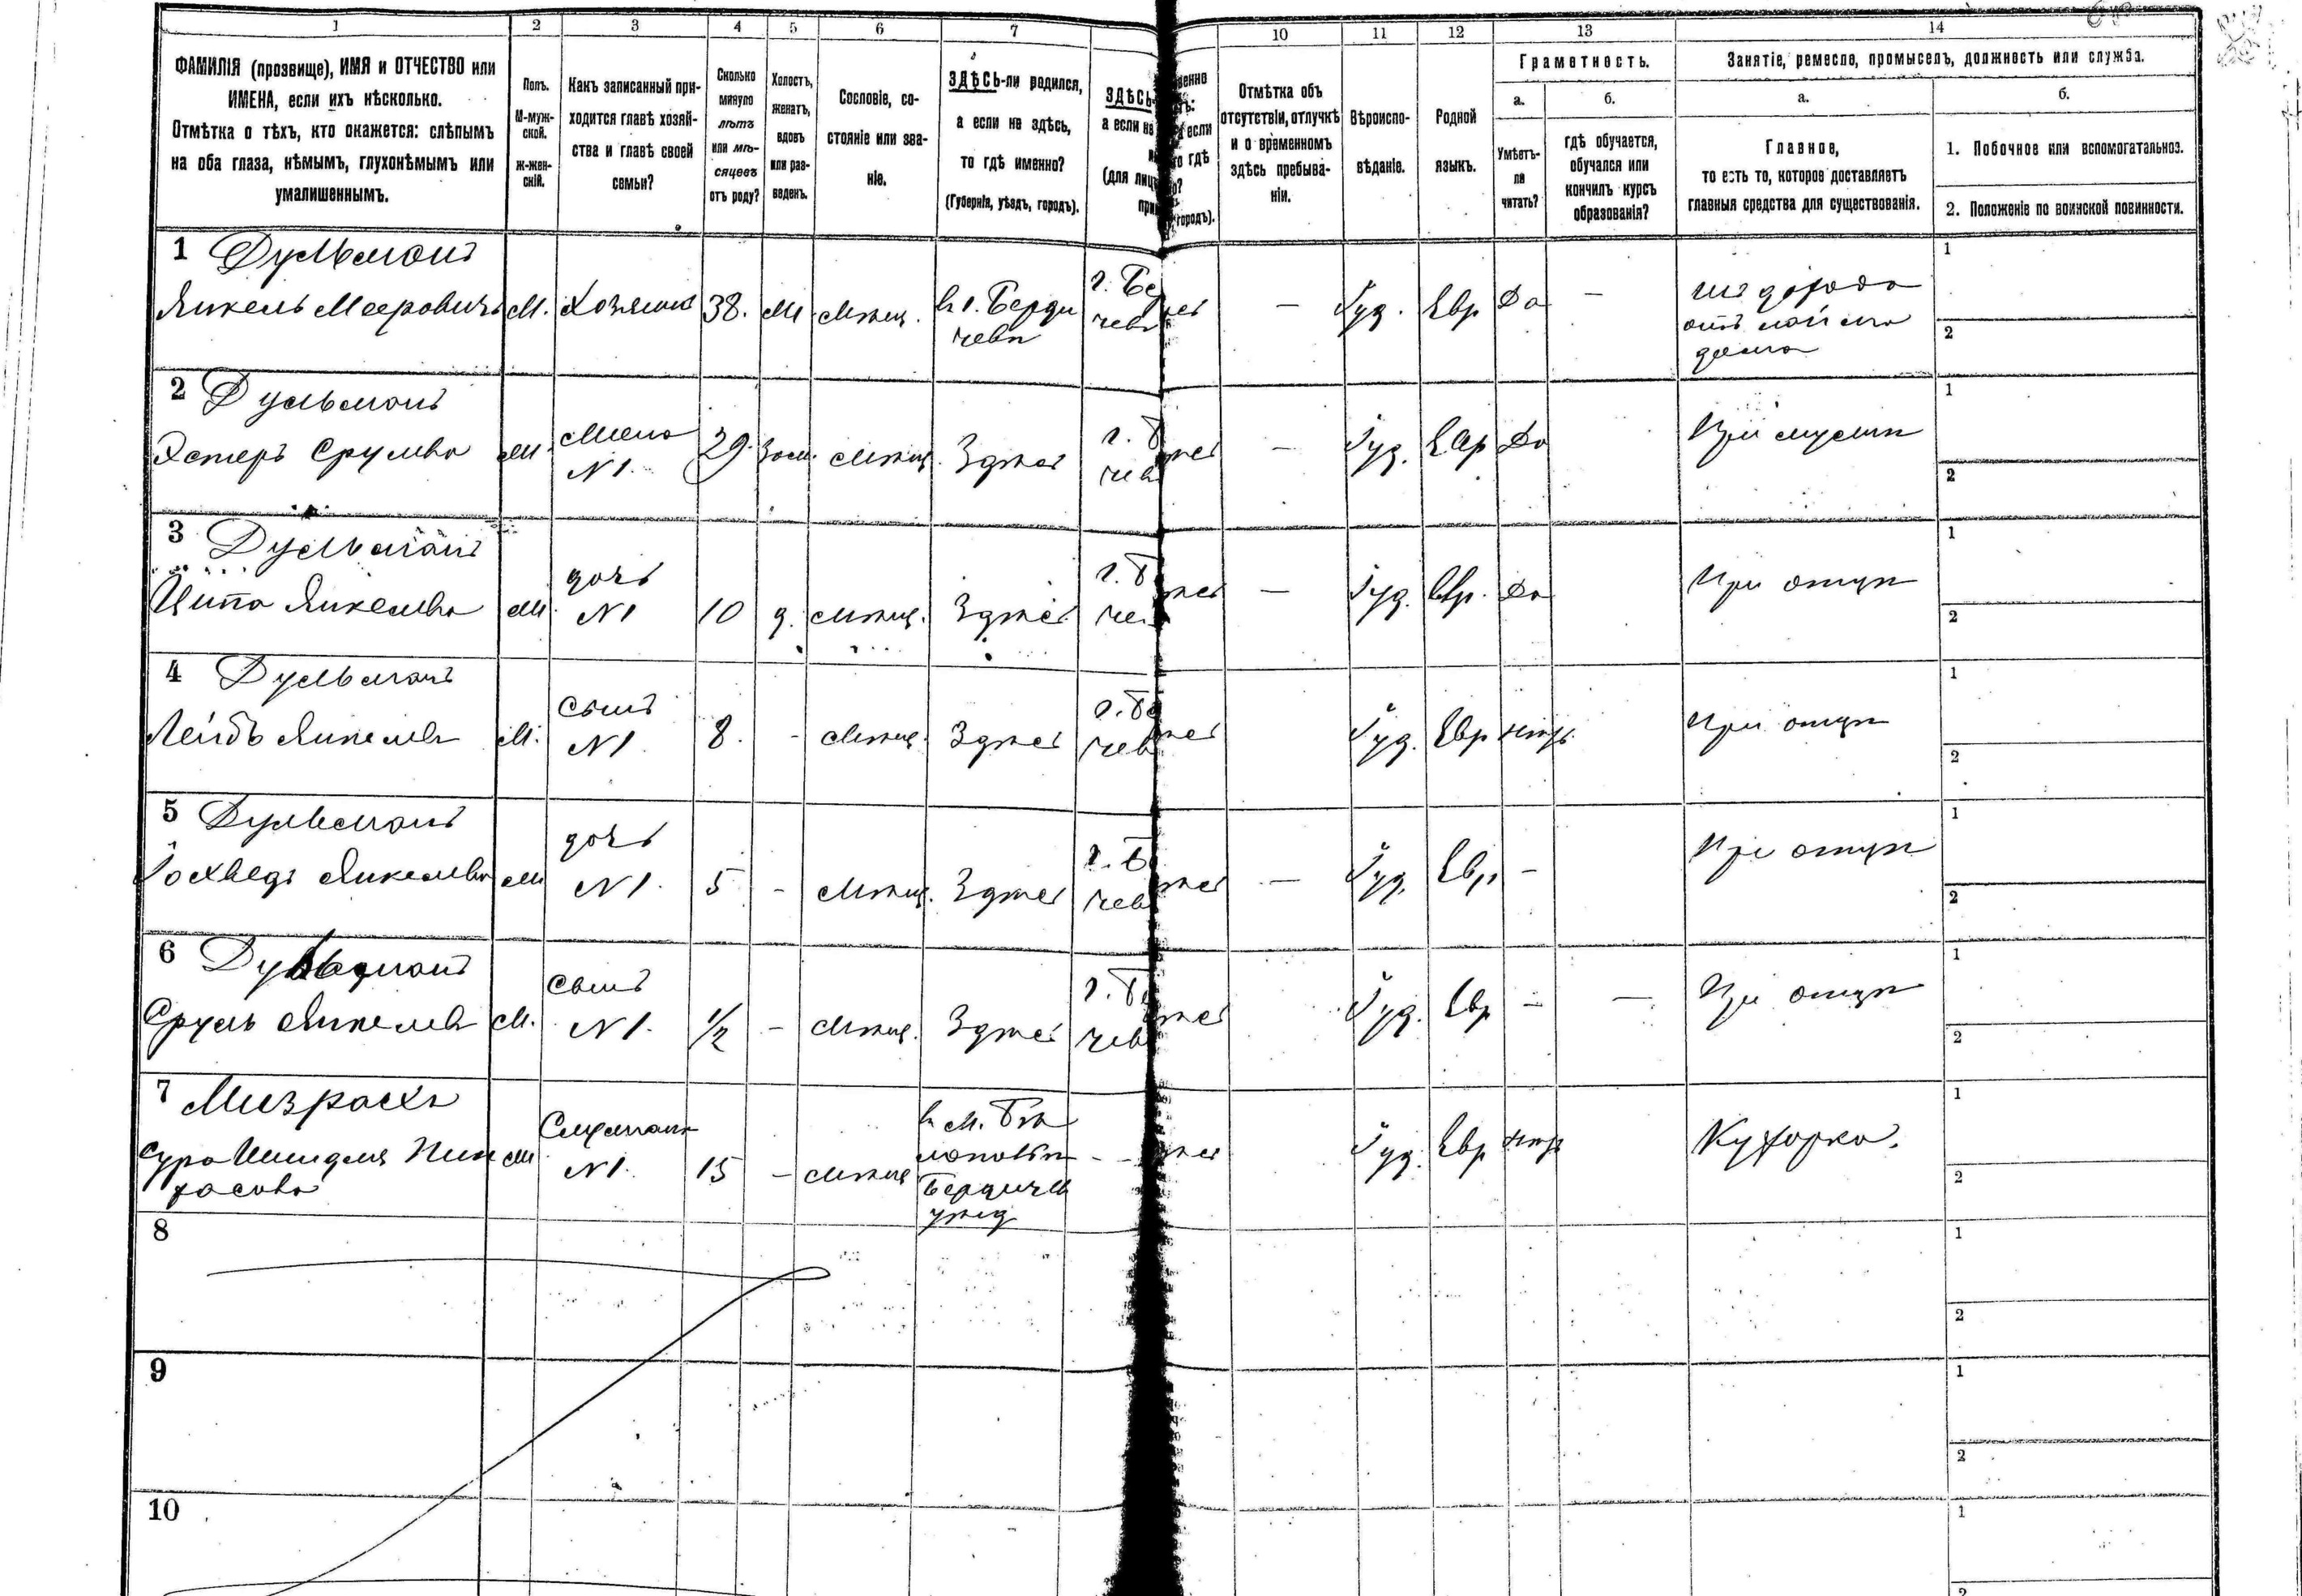 1 2 3 4 5 6 7 10 11 12 13 14
ФАМИЛІЯ (прозвище), ИМЯ и ОТЧЕСТВО или
ИМЕНА, если ихъ нѣсколько.
Отмѣтка о тѣхъ, кто окажется: слѣпымъ
на оба глаза, нѣмымъ, глухонѣмымъ или
умалишеннымъ.
Полъ.
М-муж-
ской.
Ж-жен-
скій.
Какъ записанный при-
ходится главѣ хозяй-
ства и главѣ своей
семьи?
Сколько
минуло
лѣтъ
или мѣ-
сяцевъ
отъ роду?
Холостъ,
женатъ,
вдовъ
или раз-
веденъ.
Сословіе, со-
стояніе или зва-
ніе.
ЗДѢСЬ-ли родился,
а если не здѣсь,
то гдѣ именно?
(Губернія, уѣздъ, городъ).
ЗДѢСЬ-
а если не
(для лиц
при
Отмѣтка объ
отсутствіи, отлучкѣ
и о временномъ
здѣсь пребыва-
ніи.
Вѣроиспо-
вѣданіе.
Родной
языкъ.
Грамотность.
а.
Умѣетъ-
ли
читать?
б.
гдѣ обучается,
обучался или
кончилъ курсъ
образованія?
Занятіе, ремесло, промыселъ, должность или служба.
а.
Главное,
то есть то, которое доставляетъ
главныя средства для существованія.
б.
1. Побочное или вспомогательное.
2. Положеніе по воинской повинности.
1 Дульманъ
Янкель Мееровичъ М. Хозяинъ 38. Мѣщ. въ г. Берди
чевѣ
г. Бе
чев
— Іуд. Евр Да — изъ дохода
отъ найма
дома
1
2
2 Дульманъ
Эстеръ Срулева Жена
N1. 29. Зам. Мѣщ. Здѣсь — Іуд. Евр Да При мужѣ
1
2
3 Дульманъ
Ципа Янкелева дочь
N1 10 д. Мѣщ. Здѣсь — Іуд. Евр. Да При отцѣ
1
2
4 Дульманъ
Лейбъ Янкелев М. Сынъ
N1 8. - Мѣщ. Здѣсь Іуд. Евр нѣтъ При отцѣ
1
2
5 Дульманъ
Іохведъ Янкелева дочь
N1. 5 - Мѣщ. Здѣсь — Іуд. Евр - При отцѣ
1
2
6 Дульманъ
Сруль Янкелев М. Сынъ
N1. 1/2 - Мѣщ. Здѣсь Іуд. Евр - — При отцѣ
1
2
7 Мизрахъ
Сура Пин
хасова
N1. 15 - Мѣщ
Бердичев
уѣзд
Іуд. Евр нѣтъ Кухарка.
1
2
8
1
2
9
1
2
10
1
2